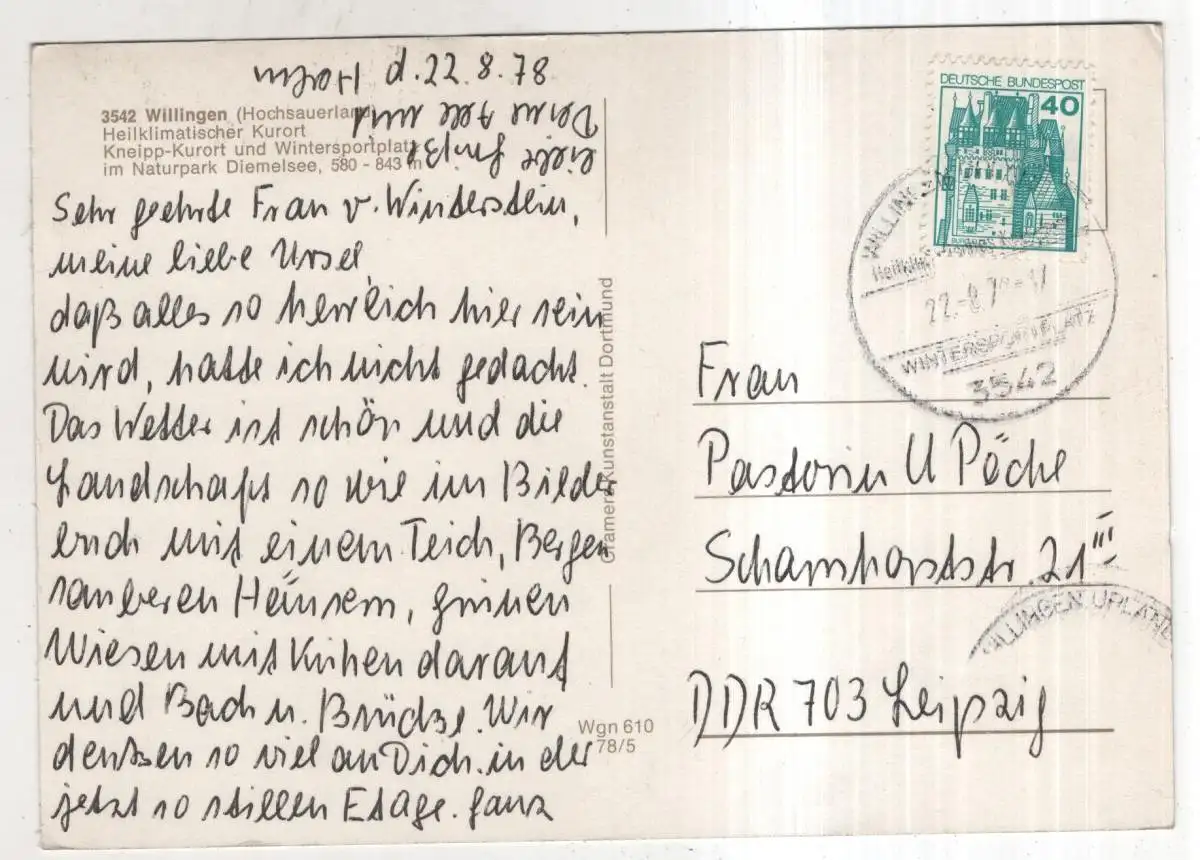 d. 22.8.78
3542 Willingen (Hochsauerland)
Heilklimatischer Kurort
Kneipp-Kurort und Wintersportplatz
im Naturpark Diemelsee, 580 - 843 m
Sehr geehrte Frau v. Winterstein,
meine liebe Ursel,
daß alles so herrlich hier sein
wird, hatte ich nicht gedacht.
Das Wetter ist schön und die
Landschaft so wie im Bilder
buch mit einem Teich, Bergen
sauberen Häusern, grünen
Wiesen mit Kühen darauf
und Bach u. Brücke. Wir
denken so viel an Dich in der
jetzt so stillen Etage. Ganz
liebe Grüße
Deine Adele und
Cramers Kunstanstalt Dortmund
Wgn 610
78/5
DEUTSCHE BUNDESPOST
40
WINTERSPORTPLATZ
3542
Frau
Pastorin U Pöche
Scharnhorststr. 21 III
DDR 703 Leipzig